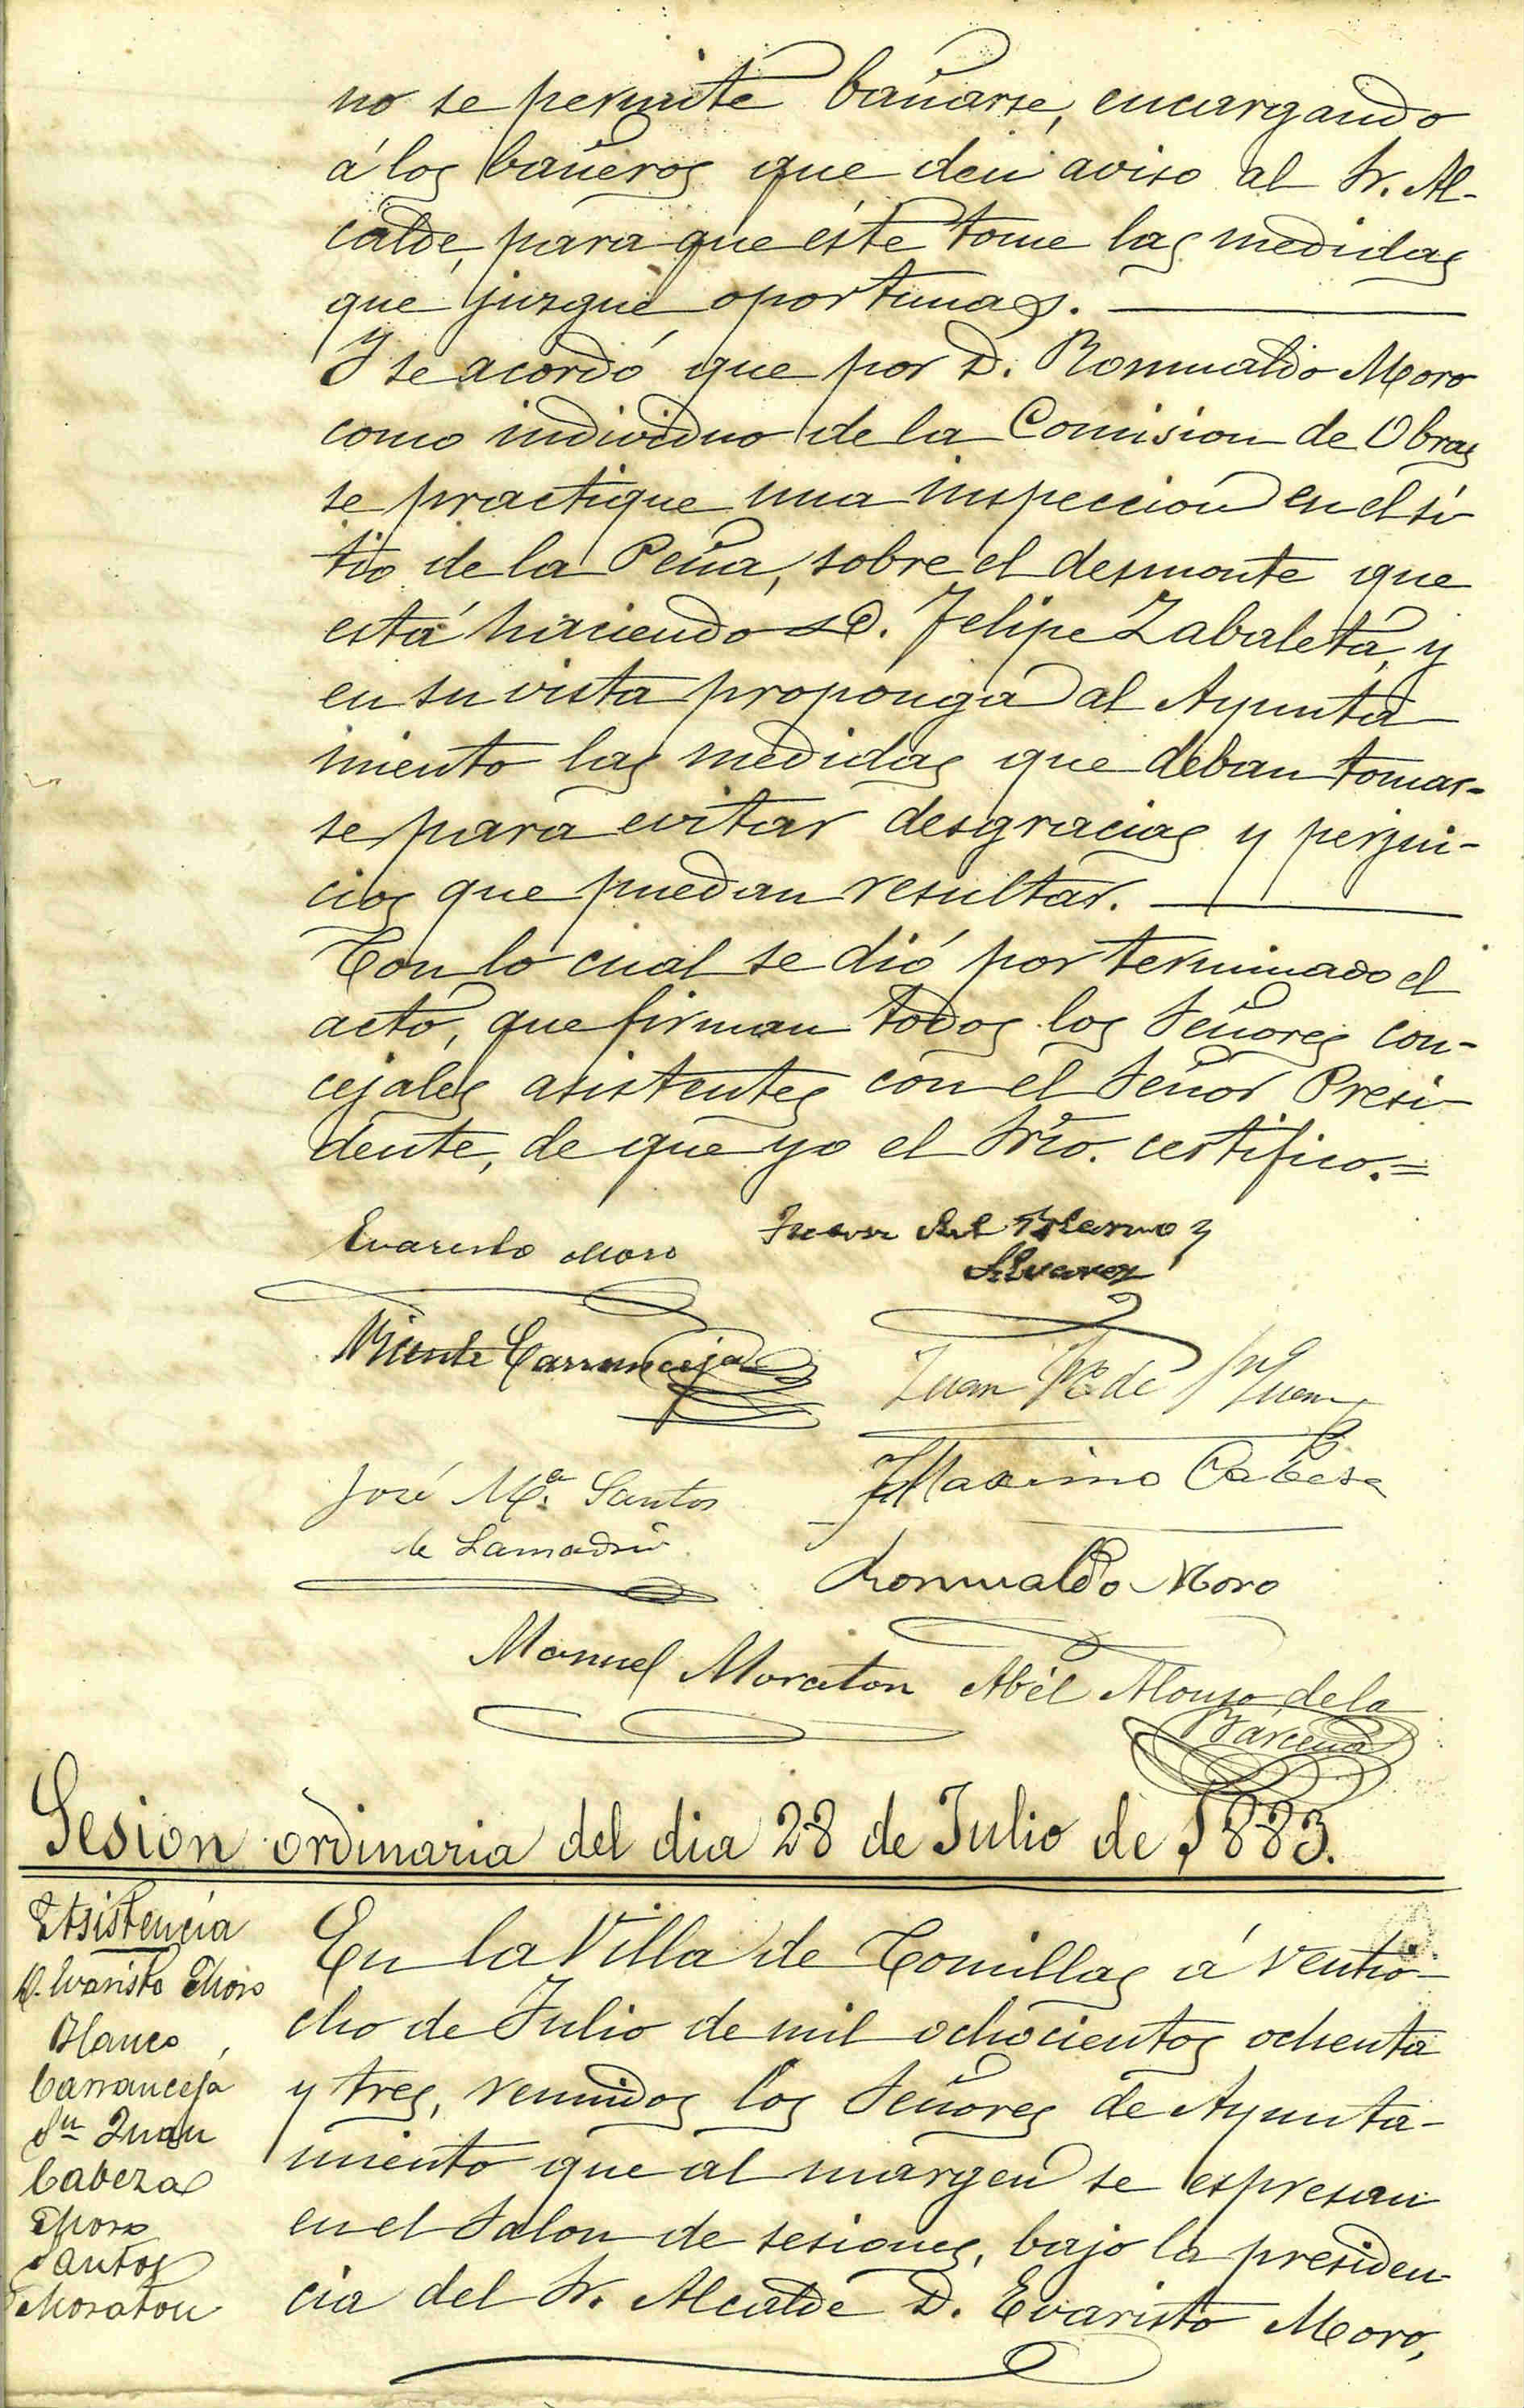 no se permite bañarse, encargando
á los bañeros que den aviso al Sr. Al-
calde, para que éste tome las medidas
que juzgue oportunas.
Y se acordó que por D. Romualdo Moro
como individuo de la Comision de Obras
se practique una inspeccion en el si
tio de la Peña, sobre el desmonte que
está haciendo D. Felipe Zabaleta, y
en su vista proponga al Ayunta
miento las medidas que deban tomar-
se para evitar desgracias y perjui-
cios que puedan resultar.
Con lo cual se dió por terminado el
acto, que firman todos los Señores con-
cejales asistentes con el Señor Presi-
dente, de que yo el Srio. certifico.=
Evaristo Moro
Juan del Blanco y
Alvarez
Vicente Carranceja
Juan de Juan
José Mª. Santos
de Lamadrid
Maximo Cabeza
Romualdo Moro
Manuel Moraton
Abél Alonso de la
Bárcena
Sesion ordinaria del dia 28 de Julio de 1883.
Asistencia
D. Evaristo Moro
Blanco
Carranceja
Sn Juan
Cabeza
Moro
Santos
Moraton
En la Villa de Comillas á ventio-
cho de Julio de mil ochocientos ochenta
y tres, reunidos los Señores de Ayunta-
miento que al margen se espresan
en el Salon de sesiones, bajo la presiden-
cia del Sr. Alcalde D. Evaristo Moro,